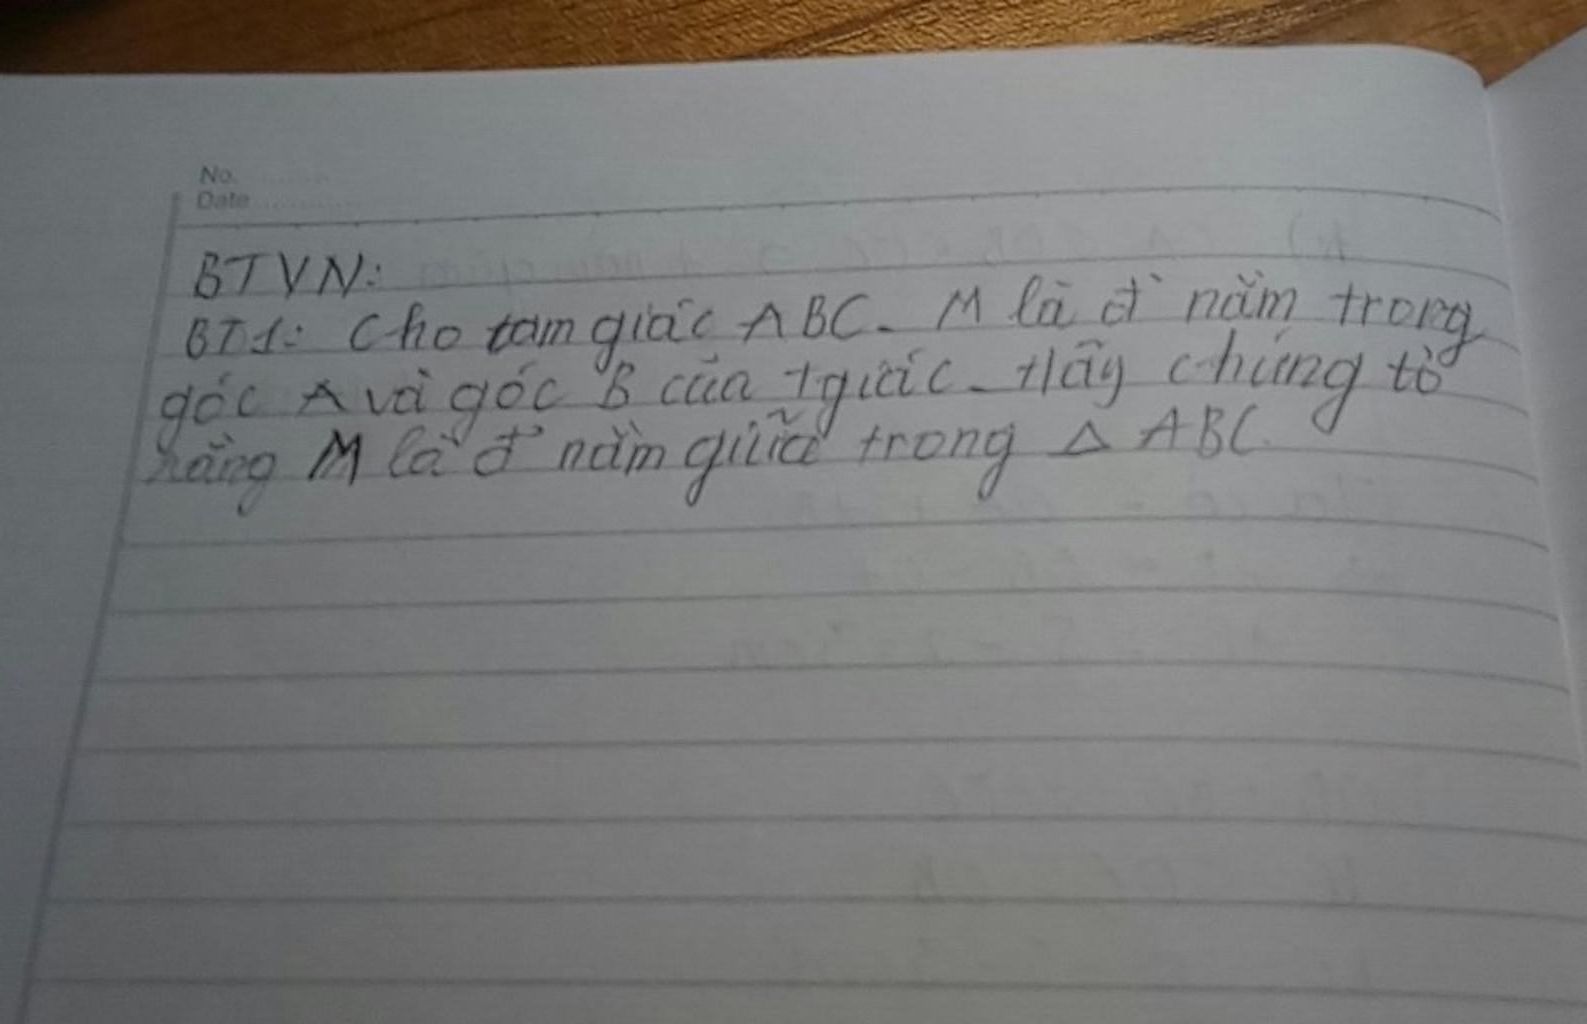 No.
Date
BTVN:
BT1: Cho tam giác ABC. M là đ' nằm trong
góc A và góc B của tgiác. Hãy chứng tỏ
rằng M là đ' nằm giữa trong △ ABC.